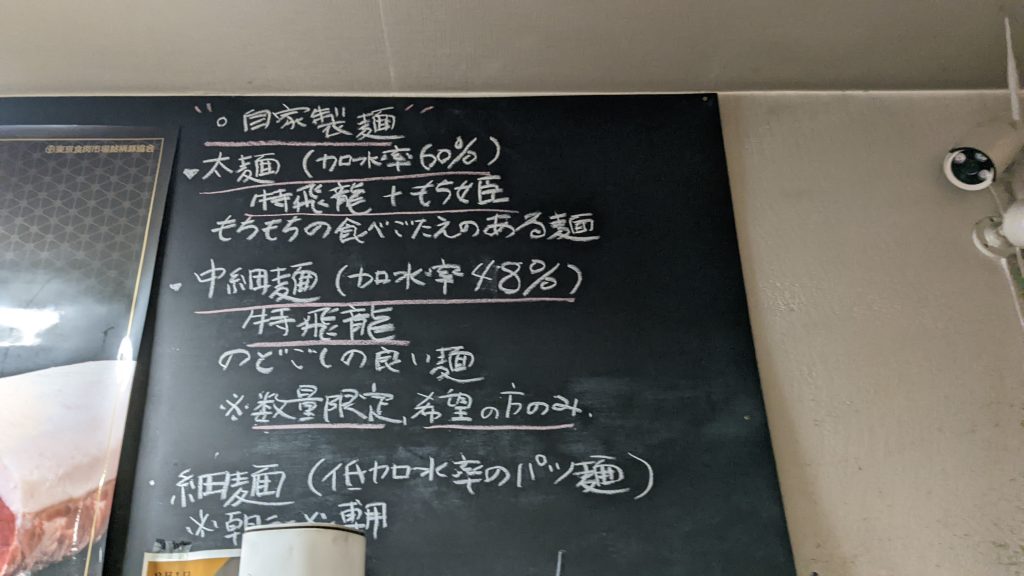 東京食肉市場銘柄豚協会
〃。自家製麺〃
♥太麺（加水率60%）
特飛龍＋もち姫
もちもちの食べごたえのある麺
♥中細麺（加水率48%）
特飛龍
のどごしの良い麺
※数量限定、希望の方のみ.
・細麺（低加水率のパツ麺）
※朝 専用